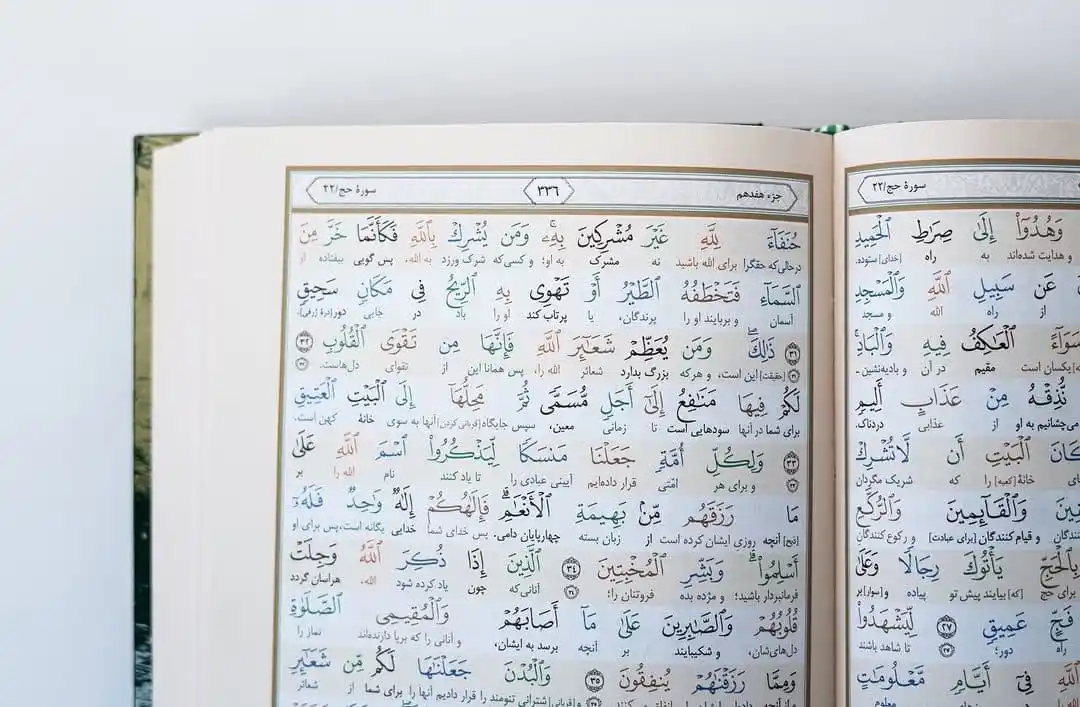 سورهٔ حج/۲۲
وَهُدُوٓا۟ إِلَىٰ صِرَٰطِ ٱلْحَمِيدِ
و هدایت شده‌اند به راه [خدای] ستوده.
عَن سَبِيلِ ٱللَّهِ وَٱلْمَسْجِدِ
از راه الله و مسجد
سَوَآءً ٱلْعَٰكِفُ فِيهِ وَٱلْبَادِ ۚ
یکسان است مقیم در آن و بادیه‌نشین.
نُّذِقْهُ مِنْ عَذَابٍ أَلِيمٍ
می‌چشانیم به او از عذابی دردناک.
مَكَانَ ٱلْبَيْتِ أَن لَّا تُشْرِكْ
خانهٔ [کعبه] را که شریک مگردان
وَٱلْقَآئِمِينَ وَٱلرُّكَّعِ
و قیام کنندگان [برای عبادت] و رکوع کنندگان
بِٱلْحَجِّ يَأْتُوكَ رِجَالًا وَعَلَىٰ
برای حج [که] بیایند پیش تو پیاده و [سوار] بر
فَجٍّ عَمِيقٍ ٢٧ لِّيَشْهَدُوا۟
راه دور؛ ۲۷ تا شاهد باشند
ٱللَّهِ فِىٓ أَيَّامٍ مَّعْلُومَٰتٍ
معلوم
جزء هفدهم ٣٣٦ سورهٔ حج/۲۲
حُنَفَآءَ لِلَّهِ غَيْرَ مُشْرِكِينَ بِهِۦ ۚ وَمَن يُشْرِكْ بِٱللَّهِ فَكَأَنَّمَا خَرَّ مِنَ
درحالی‌که حقگرا برای الله باشید نه مشرک به او؛ و کسی‌که شرک ورزد به الله، پس گویی بیفتاده از
ٱلسَّمَآءِ فَتَخْطَفُهُ ٱلطَّيْرُ أَوْ تَهْوِى بِهِ ٱلرِّيحُ فِى مَكَانٍ سَحِيقٍ
آسمان و بربایند او را پرندگان، یا پرتاب کند او را باد در جایی دور [درهٔ ژرفی].
٣١ ذَٰلِكَ وَمَن يُعَظِّمْ شَعَٰٓئِرَ ٱللَّهِ فَإِنَّهَا مِن تَقْوَى ٱلْقُلُوبِ ٣٢
۳۱ [حقیقت] این است، و هرکه بزرگ بدارد شعائر الله را، پس همانا این از تقوای دل‌هاست. ۳۲
لَكُمْ فِيهَا مَنَٰفِعُ إِلَىٰٓ أَجَلٍ مُّسَمًّى ثُمَّ مَحِلُّهَآ إِلَى ٱلْبَيْتِ ٱلْعَتِيقِ
برای شما در آنها سودهایی است تا زمانی معین، سپس جایگاه [قربانی کردن] آنها به سوی خانهٔ کهن است.
٣٣ وَلِكُلِّ أُمَّةٍ جَعَلْنَا مَنسَكًا لِّيَذْكُرُوا۟ ٱسْمَ ٱللَّهِ عَلَىٰ
۳۳ و برای هر امّتی قرار داده‌ایم آیینی عبادی را تا یاد کنند نام الله را بر
مَا رَزَقَهُم مِّنۢ بَهِيمَةِ ٱلْأَنْعَٰمِ ۗ فَإِلَٰهُكُمْ إِلَٰهٌ وَٰحِدٌ فَلَهُۥٓ
[ذبح] آنچه روزی ایشان کرده است از زبان بسته چهارپایان دامی. پس خدای شما خدایی یگانه است، پس برای او
أَسْلِمُوا۟ ۗ وَبَشِّرِ ٱلْمُخْبِتِينَ ٣٤ ٱلَّذِينَ إِذَا ذُكِرَ ٱللَّهُ وَجِلَتْ
فرمانبردار باشید؛ و مژده بده فروتنان را؛ ۳۴ آنانی‌که چون یاد کرده شود الله، هراسان گردد
قُلُوبُهُمْ وَٱلصَّٰبِرِينَ عَلَىٰ مَآ أَصَابَهُمْ وَٱلْمُقِيمِى ٱلصَّلَوٰةِ
دل‌های‌شان، و شکیبایند بر آنچه برسد به ایشان، و آنانی را که برپا دارنده‌اند نماز را
وَمِمَّا رَزَقْنَٰهُمْ يُنفِقُونَ ٣٥ وَٱلْبُدْنَ جَعَلْنَٰهَا لَكُم مِّن شَعَٰٓئِرِ
۳۵ و [قربانی] شترانی تنومند را قرار دادیم آنها را برای شما از شعائر